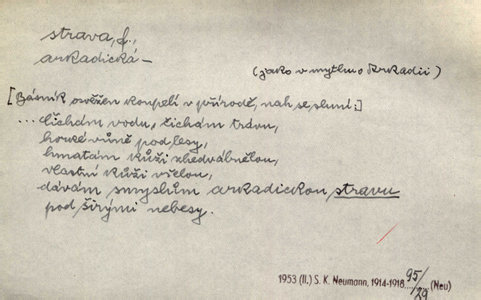 strava, f.,
arkadická –
(jako v mythu o Arkadii)
[Básník osvěžen koupelí v přírodě, nah se sluní:]
... čichám vodu, čichám trávu,
horké vůně pod lesy,
hmatám kůži zhedvábnělou,
vlastní kůži vřelou,
dávám smyslům arkadickou stravu
pod širými nebesy.
1953 (II.) S. K. Neumann, 1914-1918, 95/29 (Neu)